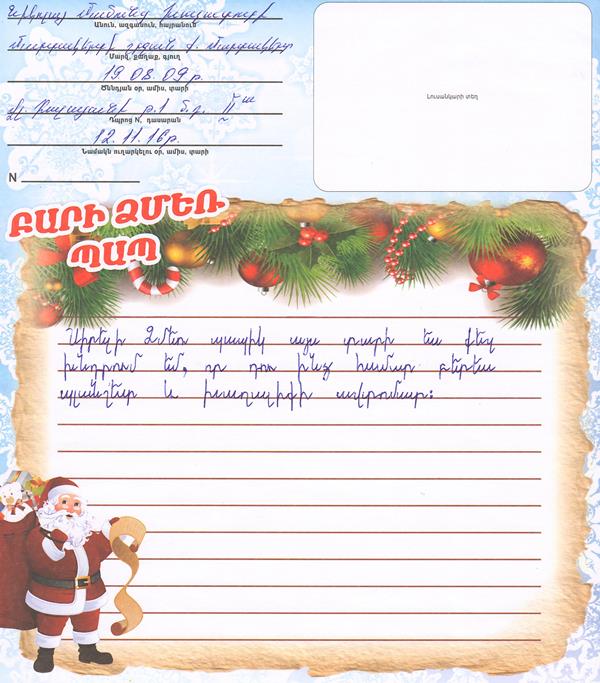 Անուն, ազգանուն, հայրանուն
Մարզ, քաղաք, գյուղ
19.08.09թ.
Ծննդյան օր, ամիս, տարի
թ.1 մ.դ. II
Դպրոց N, դասարան
12.11.16թ.
Նամակն ուղարկելու օր, ամիս, տարի
N
Լուսանկարի տեղ
ԲԱՐԻ ՁՄԵՌ
ՊԱՊ
Սիրելի Ձմեռ պապիկ այս տարի ես քեզ
խնդրում եմ, որ դու ինձ համար բերես
պլանշետ և խաղալիքի